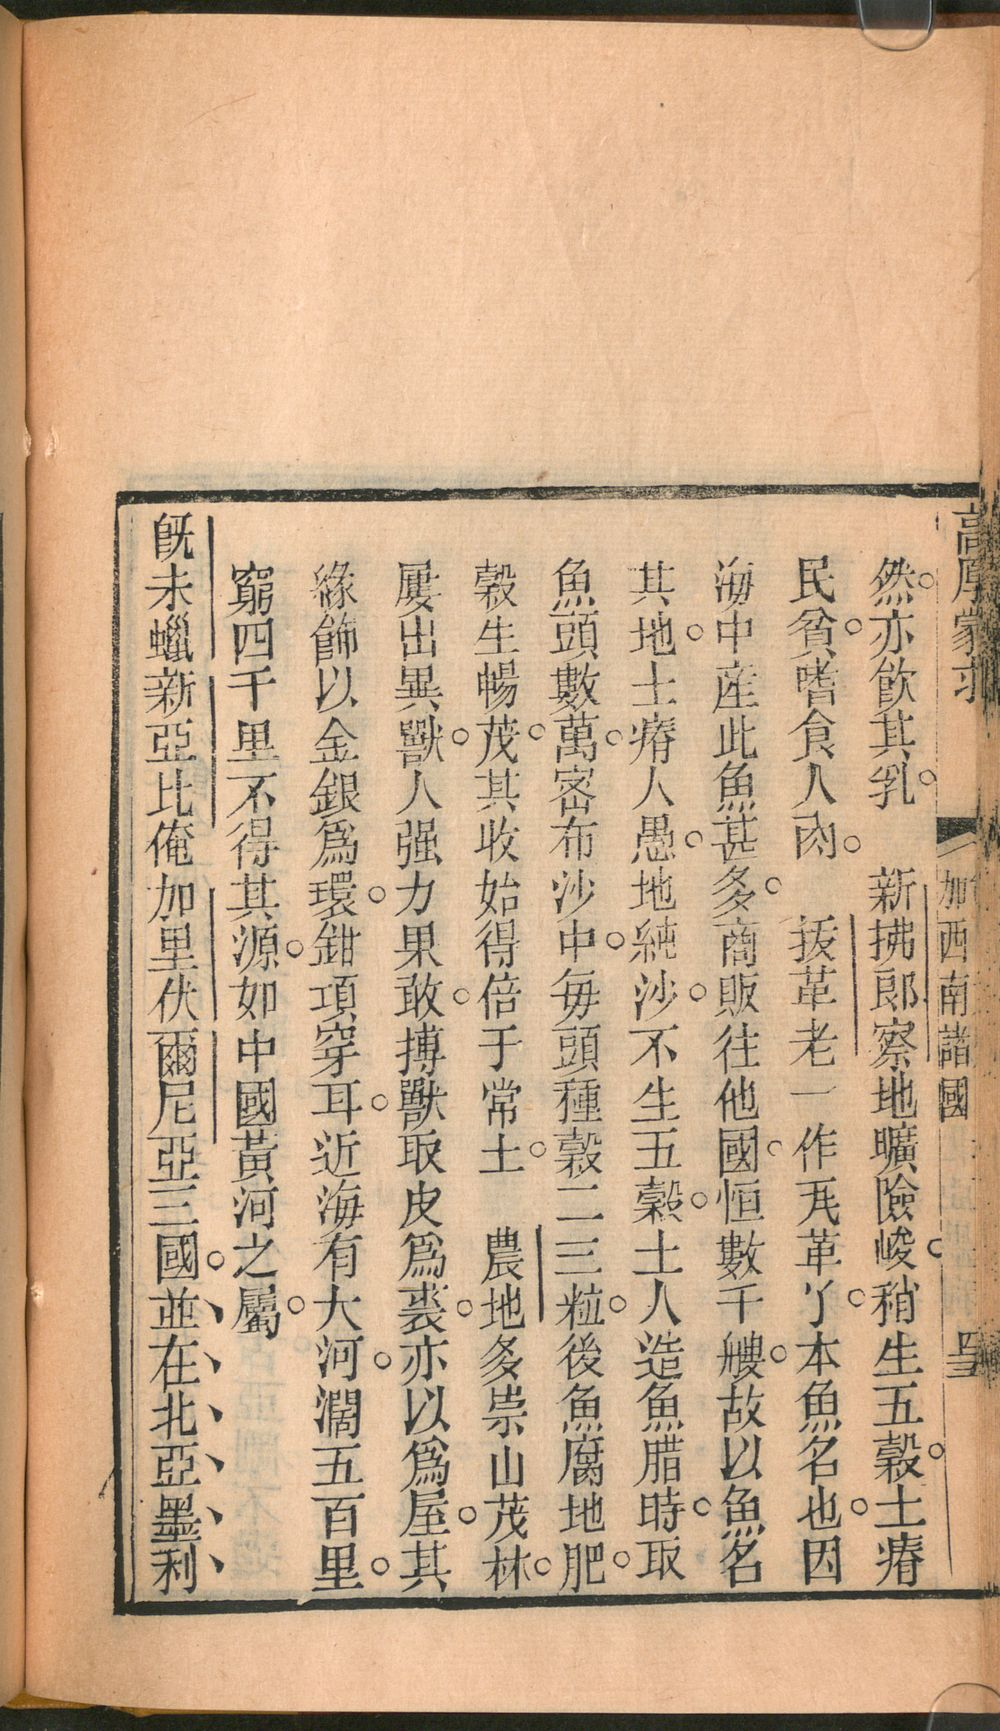 高厚蒙求
加西南諸國
然。亦飲其乳。　新拂郎察地曠險峻。稍生五穀。土瘠
民貧。嗜食人肉。　拔革老一作瓦革了。本魚名也。因
海中産此魚甚多。商販往他國。恒數千艘。故以魚名
其地。土瘠人愚。地純沙。不生五穀。土人造魚腊時。取
魚頭數萬。密布沙中。每頭種穀二三粒。後魚腐地肥。
穀生暢茂。其收始得倍于常土。　農地多崇山茂林。
屢出異獸。人强力果敢。搏獸取皮爲裘。亦以爲屋。其
緣飾以金銀爲環。鉗項穿耳。近海有大河。濶五百里。
窮四千里不得其源。如中國黃河之屬。
旣未蠟新亞比俺加里伏爾尼亞三國。並在北亞墨利